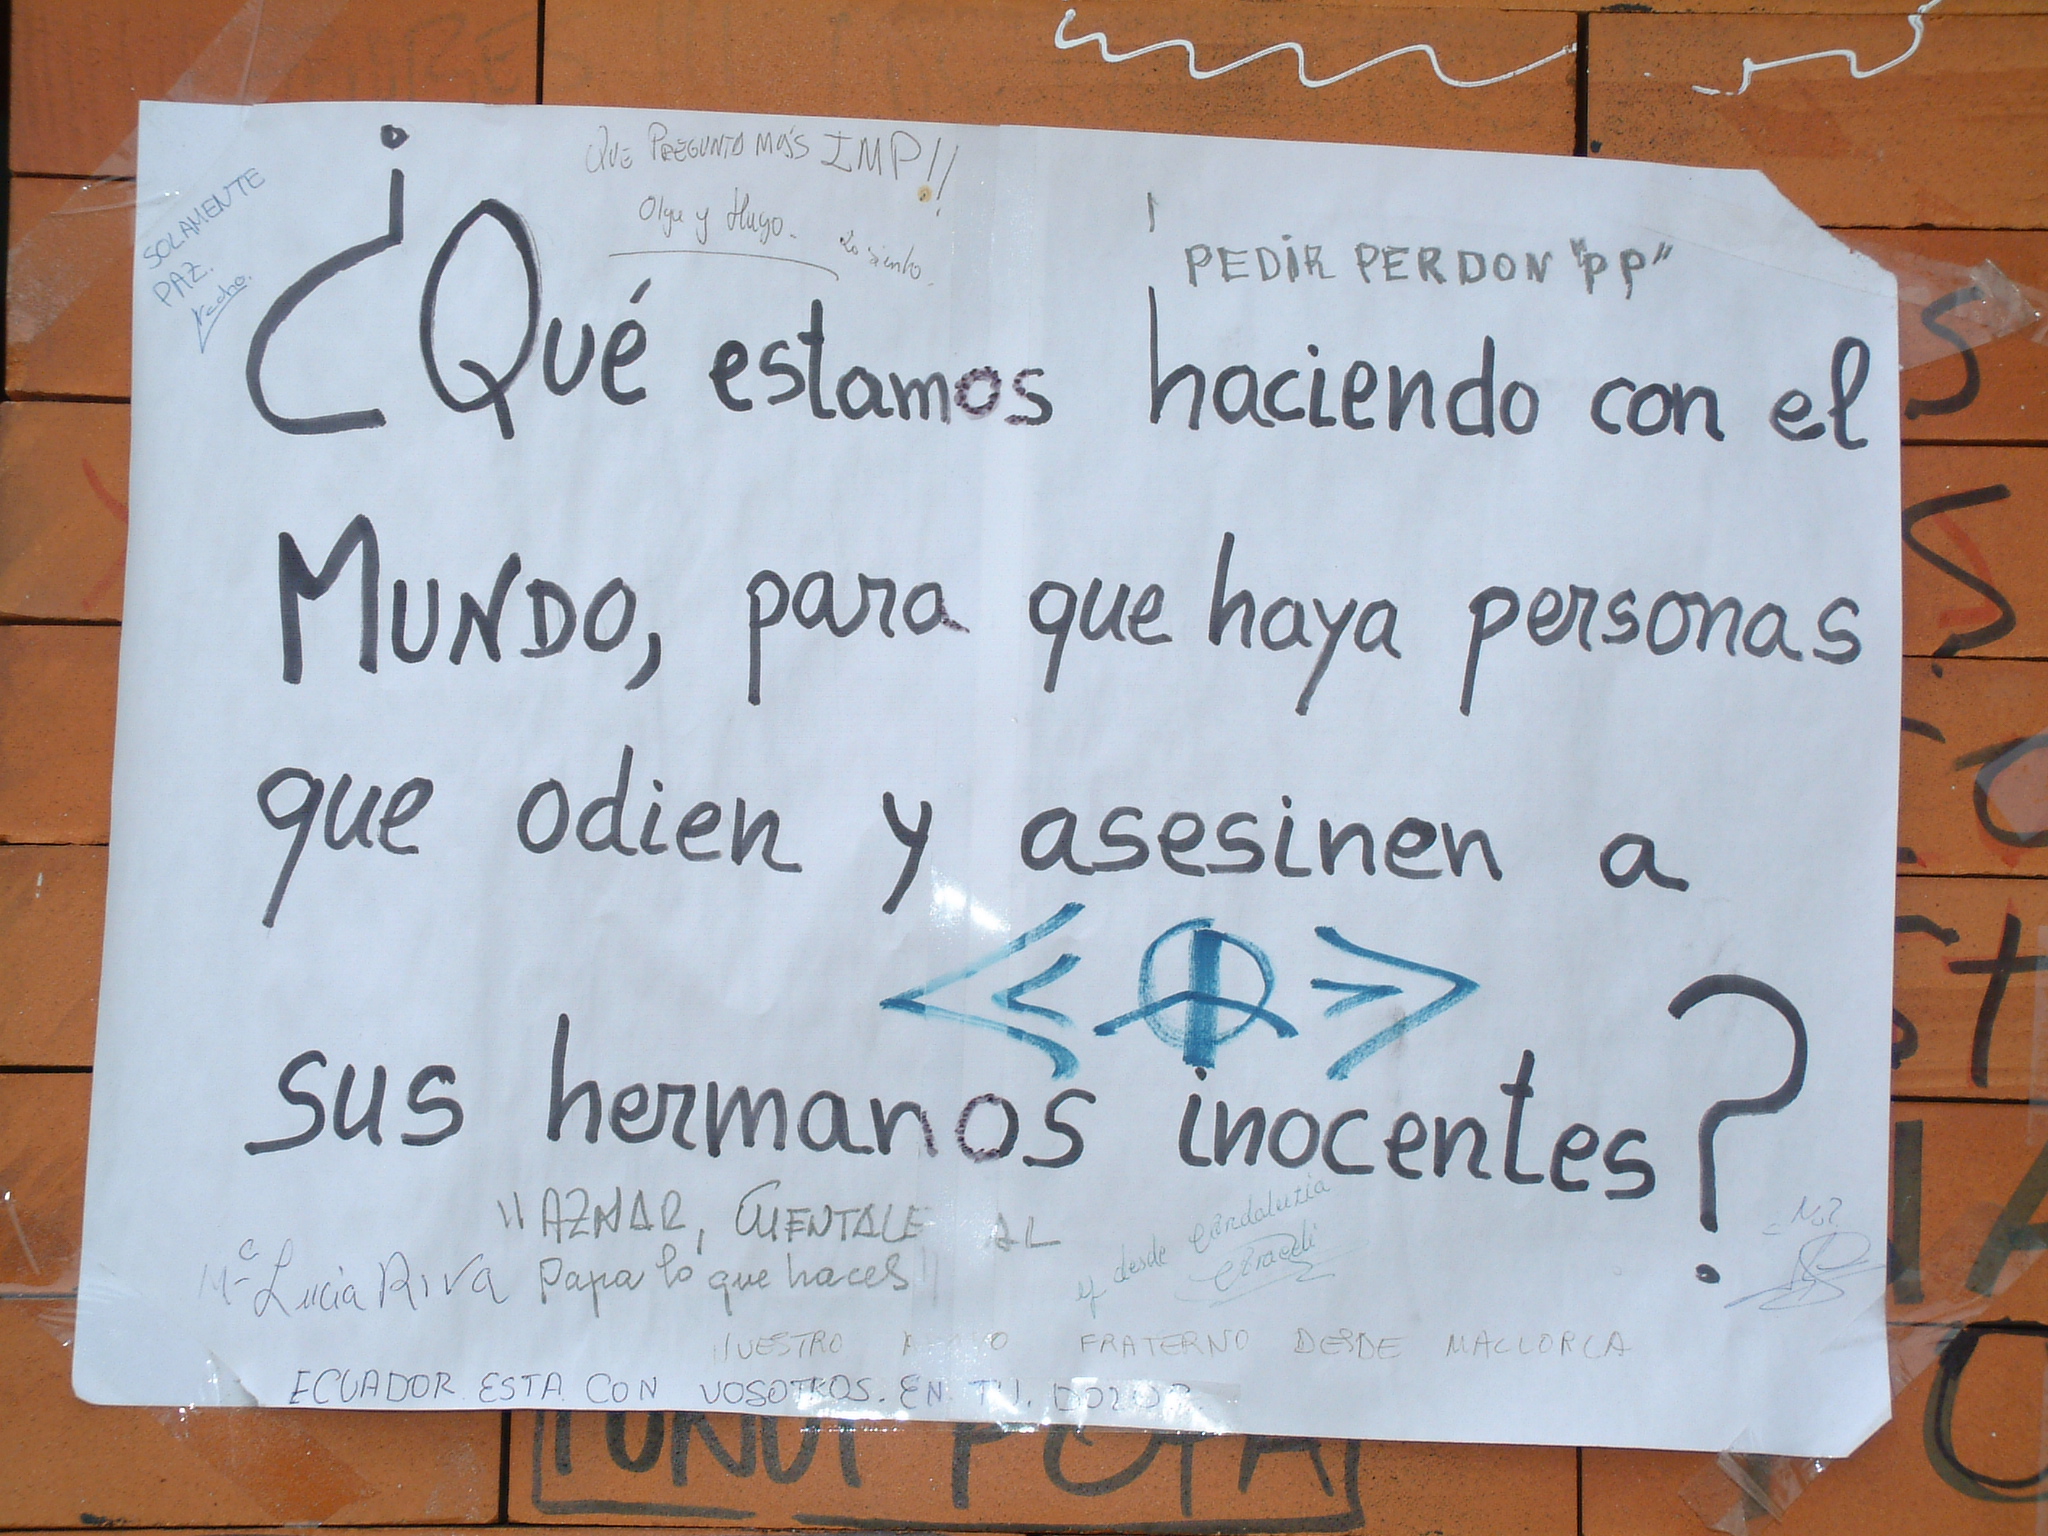 QUE PREGUNTA MÁS IMP!!
Olga y Hugo.
Lo siento
SOLAMENTE
PAZ.
PEDIR PERDON "PP"
¿Qué estamos haciendo con el
MUNDO, para que haya personas
que odien y asesinen a
sus hermanos inocentes?
AZNAR, CUENTALE AL
Papa lo que haces
Mª Lucia Riva
y desde Andaluzia
Araceli
NUESTRO FRATERNO DESDE MALLORCA
ECUADOR ESTA CON VOSOTROS. EN TU. DOLOR.